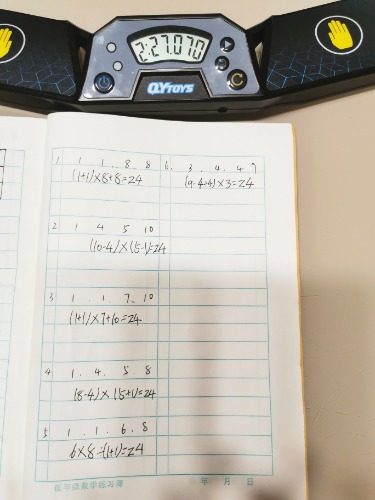 2:27.070
QYTOYS
1. 1 1 8 8
(1+1)×8+8=24
2 1 4 5 10
(10-4)×(5-1)=24
3 1. 1. 7. 10
(1+1)×7+10=24
4 1. 4. 5 8
(8-4)×(5+1)=24
5 1. 1. 6. 8
6×8÷(1+1)=24
6. 3 4. 4
×3=24
低年级数学练习簿
年 月 日